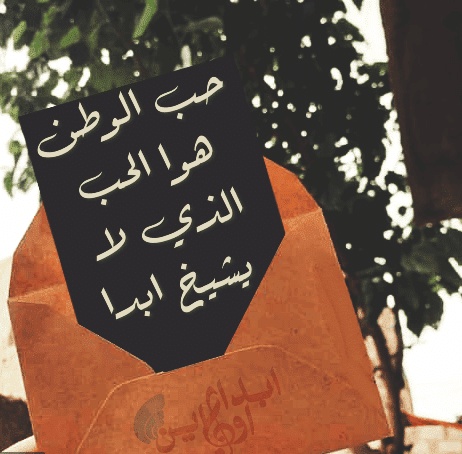 حب الوطن
هوا الحب
الذي لا
يشيخ ابدا
ابداع
اون لاين